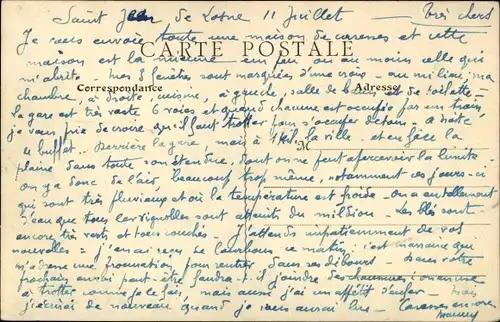 Saint Jean de Losne 11 Juillet Très chers
Je vous envoie toute une maison de caresses et cette
CARTE POSTALE
maison est la mienne un peu ou au moins celle qui
m'abrite. Mes 3 fenêtres sont marquées d'une croix - au milieu ma
Correspondance Adresse
chambre, à droite, cuisine, à gauche, salle de bains et de toilette
la gare est très vaste 6 voies et quand chacune est occupée par un train,
je vous prie de croire qu'il faut trotter pour s'occuper de tous. à droite
le buffet. Derrière la gare, mais à 1 kil. la ville en face la
M
plaine dans toute son étendue, dont on ne peut apercevoir la limite
on y a donc de l'air, beaucoup trop même, notamment ces jours-ci
qui sont très pluvieux et où la température est froide - on a eu tellement
d'eau que tous les vignobles sont atteints du mildiou. Les blés sont
encore très verts et tous couchés. J'attends impatiemment de vos
nouvelles - j'ai reçu le ce matin: c'est maman qui
m'a donné une pour rentrer dans ses débours - Dans votre
prochain envoi peut-être faudra-t-il joindre des chaussures on en use
à trotter comme je le fais, mais aussi j'ai un appétit d'enfer.
j'écrirai de nouveau quand je vous aurai lue - Caresses encore